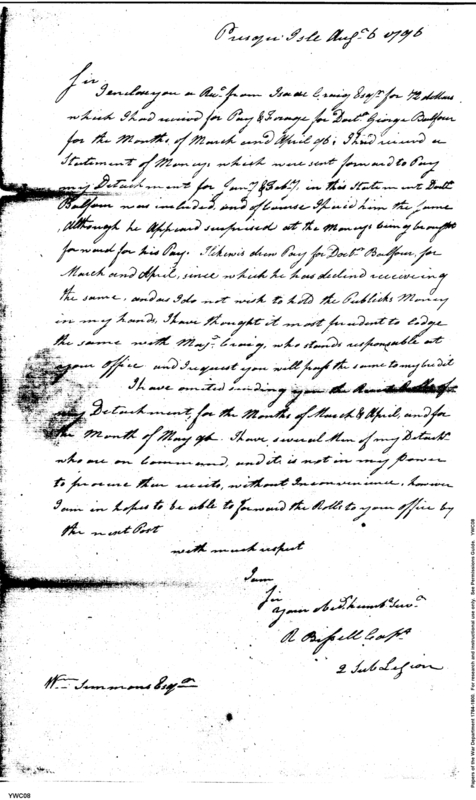 Presqu Isle Augt. 6 1796
Sir
I enclose you a Rect. from Isaac Craig Esqr. for 72 dollars
which I had receivd for Pay & Forage for Doctr. George Balfour
for the Months, of March and April 96; I had receivd a
Statement of Moneys which were sent forward to Pay
my Detachment for Jany. & Feby. in this Statement Doctr.
Balfour was included, and of Course I paid him the same
Although he Appeard surprised at the Moneys being brought
forward for his Pay. I likewis drew Pay for Doctr. Balfour, for
March and April, since which he has declind receiveing
the same, and as I do not wish to hold the Publicks Money
in my hands I have thought it most prudent to lodge
the same with Majr. Craig, who stands responsable at
your office and I request you will pass the same to my Credit
I have omited sending you the Rolls of
my Detachment, for the Months of March & April, and for
the Month of May 96. I have several Men of my Detacht.
who are on Command, and it is not in my Power
to procure their receits, without Inconvenience, however
I am in hopes to be able to forward the Rolls to your Office by
the next Post
with much respect
I am
Sir
your obedt. humbl. Servt.
R Bissell Capt.
2 Sub Legion
Wm. Simmons Esqr.
YWC08
Papers of the War Department 1784-1800. For research and instructional use only. See Permissions Guide. YWC08